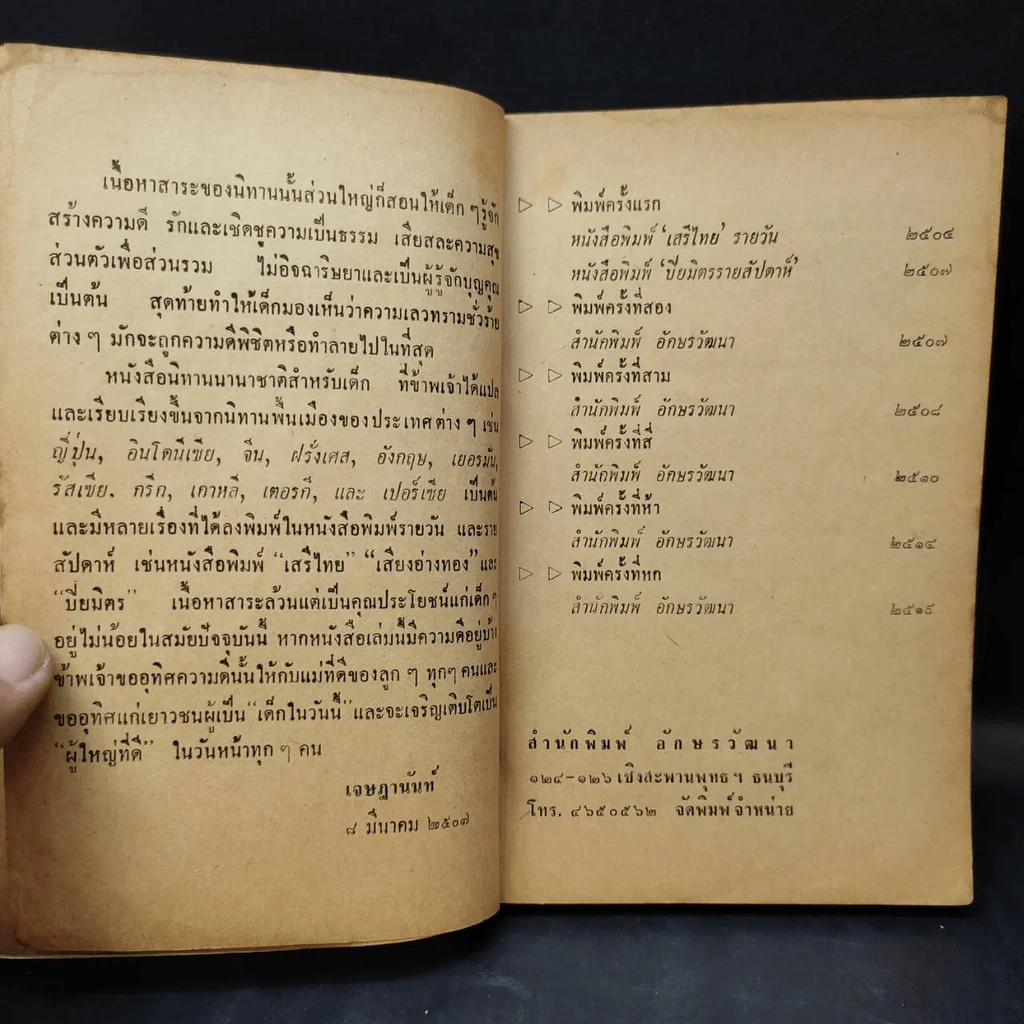 เนื้อหาสาระของนิทานนั้นส่วนใหญ่ก็สอนให้เด็ก ๆ รู้จัก
สร้างความดี รักและเชิดชูความเป็นธรรม เสียสละความสุข
ส่วนตัวเพื่อส่วนรวม ไม่อิจฉาริษยาและเป็นผู้รู้จักบุญคุณ
เป็นต้น สุดท้ายทำให้เด็กมองเห็นว่าความเลวทรามชั่วร้าย
ต่าง ๆ มักจะถูกความดีพิชิตหรือทำลายไปในที่สุด
หนังสือนิทานนานาชาติสำหรับเด็ก ที่ข้าพเจ้าได้แปล
และเรียบเรียงขึ้นจากนิทานพื้นเมืองของประเทศต่าง ๆ เช่น
ญี่ปุ่น, อินโดนีเซีย, จีน, ฝรั่งเศส, อังกฤษ, เยอรมัน,
รัสเซีย. กรีก, เกาหลี, เตอรกี, และ เปอร์เซีย เป็นต้น
และมีหลายเรื่องที่ได้ลงพิมพ์ในหนังสือพิมพ์รายวัน และราย
สัปดาห์ เช่นหนังสือพิมพ์ “เสรีไทย” “เสียงอ่างทอง” และ
“ปิยมิตร” เนื้อหาสาระล้วนแต่เป็นคุณประโยชน์แก่เด็กๆ
อยู่ไม่น้อยในสมัยปัจจุบันนี้ หากหนังสือเล่มนี้มีความดีอยู่บ้าง
ข้าพเจ้าขออุทิศความดีนั้นให้กับแม่ที่ดีของลูก ๆ ทุกๆ คนและ
ขออุทิศแก่เยาวชนผู้เป็น “เด็กในวันนี้” และจะเจริญเติบโตเป็น
“ผู้ใหญ่ที่ดี” ในวันหน้าทุก ๆ คน
เจษฎานันท์
๘ มีนาคม ๒๕๐๗
▷ ▷ พิมพ์ครั้งแรก
หนังสือพิมพ์ ‘เสรีไทย’ รายวัน ๒๕๐๔
หนังสือพิมพ์ ‘ปิยมิตรรายสัปดาห์’ ๒๕๐๗
▷ ▷ พิมพ์ครั้งที่สอง
สำนักพิมพ์ อักษรวัฒนา ๒๕๐๗
▷ ▷ พิมพ์ครั้งที่สาม
สำนักพิมพ์ อักษรวัฒนา ๒๕๐๘
▷ ▷ พิมพ์ครั้งที่สี่
สำนักพิมพ์ อักษรวัฒนา ๒๕๑๐
▷ ▷ พิมพ์ครั้งที่ห้า
สำนักพิมพ์ อักษรวัฒนา ๒๕๑๔
▷ ▷ พิมพ์ครั้งที่หก
สำนักพิมพ์ อักษรวัฒนา ๒๕๑๙
สำนักพิมพ์ อักษรวัฒนา
๑๒๔-๑๒๖ เชิงสะพานพุทธ ฯ ธนบุรี
โทร. ๔๖๕๐๕๖๒ จัดพิมพ์จำหน่าย